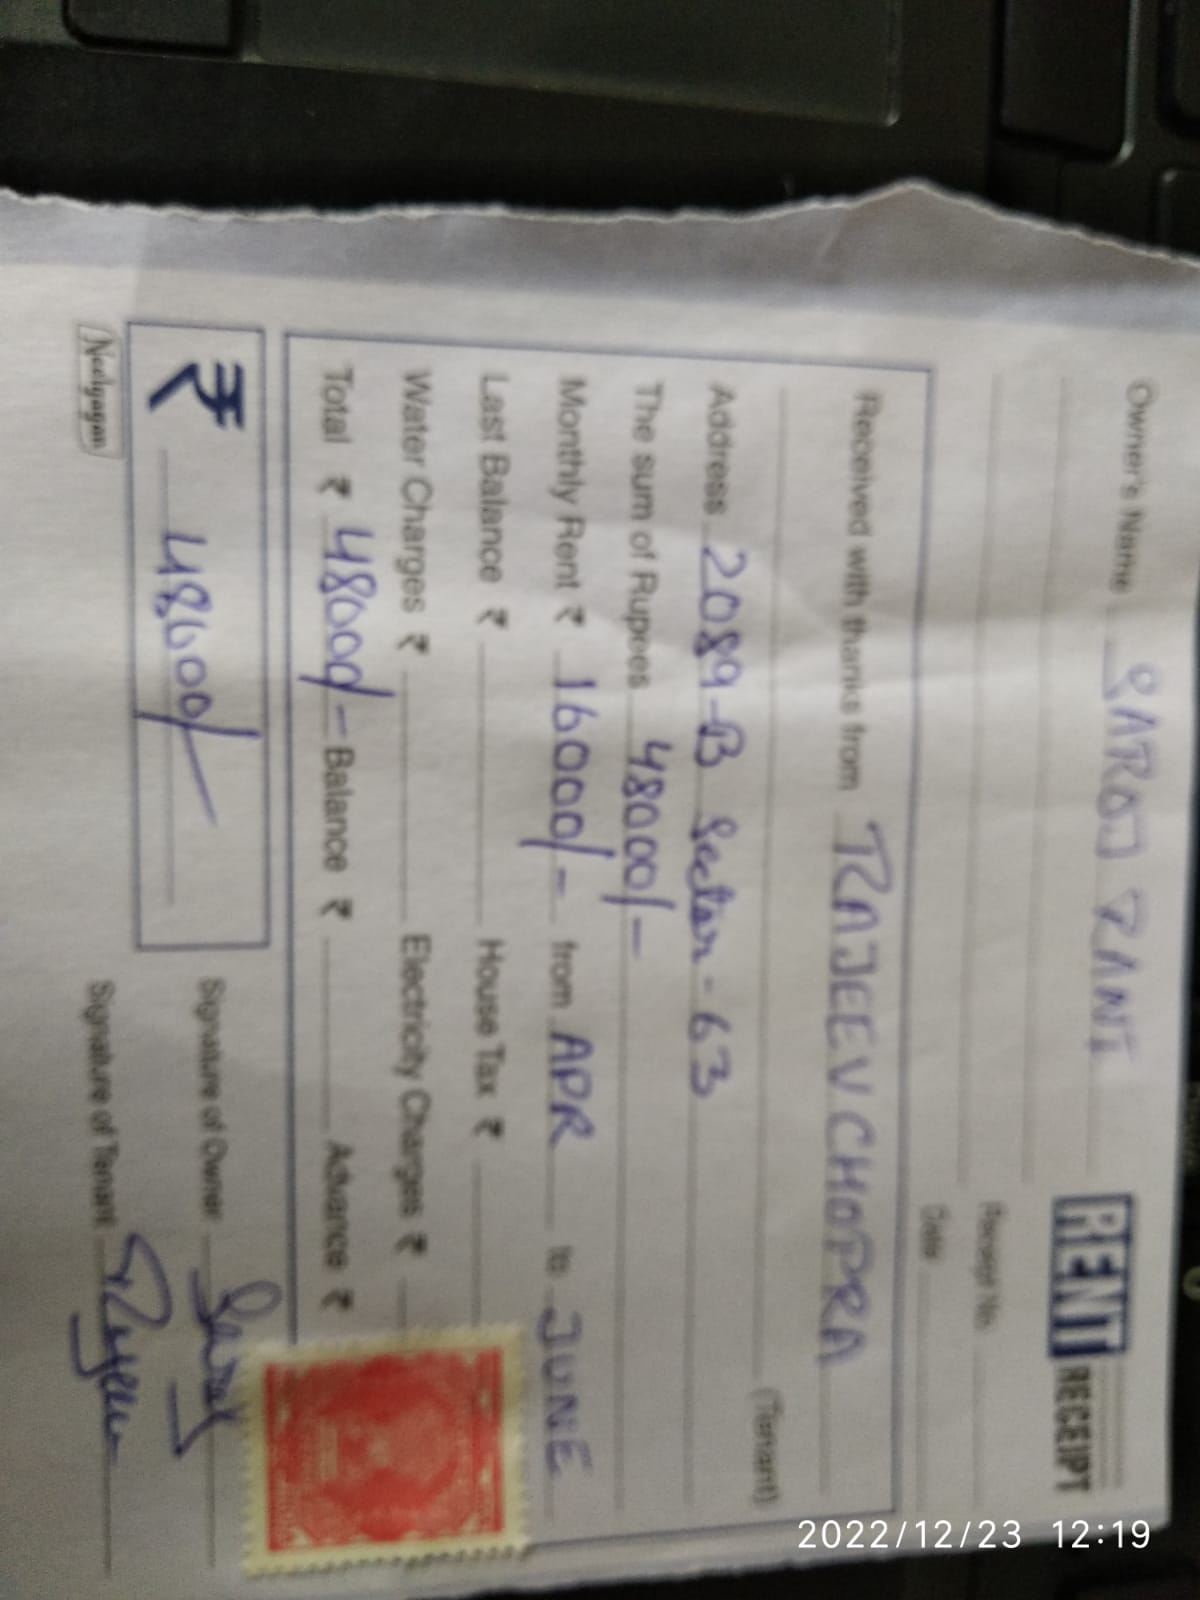 RENT RECEIPT
Owner's Name SAROJ RANI
Receipt No.
Date
Received with thanks from RAJEEV CHOPRA
(Tenant)
Address 2089-B Sector-63
The sum of Rupees 48000/-
Monthly Rent ₹ 16000/- from APR to JUNE
Last Balance ₹ House Tax ₹
Water Charges ₹ Electricity Charges ₹
Total ₹ 48000/- Balance ₹ Advance ₹
₹ 48000/-
Signature of Owner Saroj
Signature of Tenant Rajeev
Neelgagan
2022/12/23 12:19